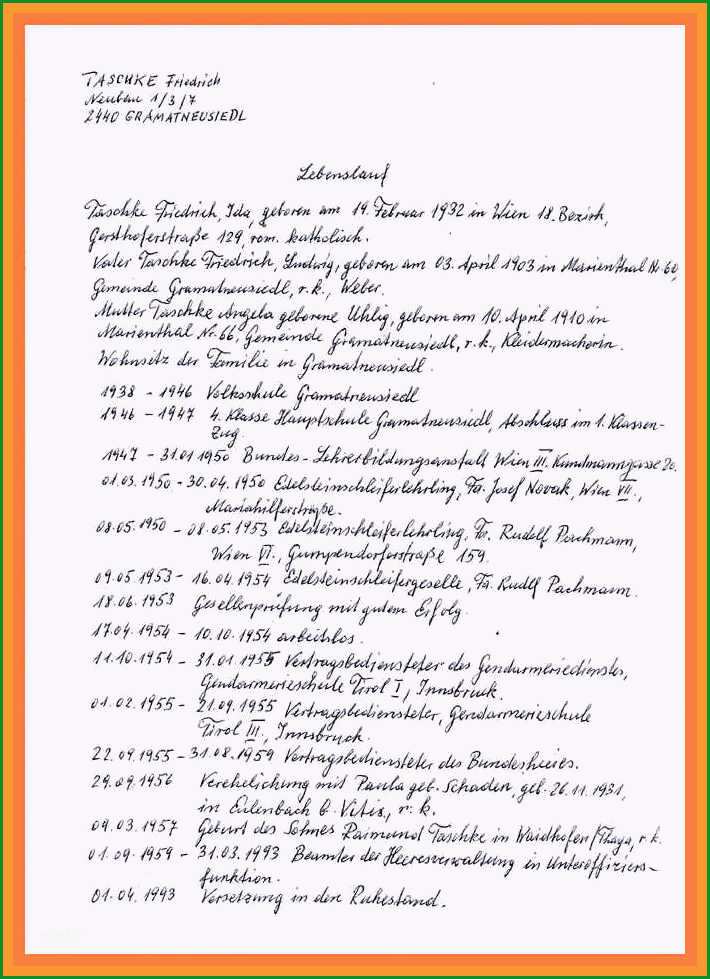 TASCHKE Friedrich
Neubau 1/3/7
2440 GRAMATNEUSIEDL
Lebenslauf
Taschke Friedrich, Ida, geboren am 19. Februar 1932 in Wien 18. Bezirk,
Gersthoferstraße 129, röm. katholisch.
Vater Taschke Friedrich, Ludwig, geboren am 03. April 1903 in Marienthal Nr. 60,
Gemeinde Gramatneusiedl, r.k., Weber.
Mutter Taschke Angela geborene Uhlig, geboren am 10. April 1910 in
Marienthal Nr. 66, Gemeinde Gramatneusiedl, r.k., Kleidermacherin.
Wohnsitz der Familie in Gramatneusiedl.
1938 - 1946 Volksschule Gramatneusiedl
1946 - 1947 4. Klasse Hauptschule Gramatneusiedl, Abschluss im 1. Klassen-
Zug.
1947 - 31.01.1950 Bundes-Lehrerbildungsanstalt Wien III. Kundmanngasse 20.
01.03.1950 - 30.04.1950 Edelsteinschleiferlehrling, Fa. Josef Novak, Wien VII.,
Mariahilferstraße.
08.05.1950 - 08.05.1953 Edelsteinschleiferlehrling, Fa. Rudolf Pachmann,
Wien VI., Gumpendorferstraße 159.
09.05.1953 - 16.04.1954 Edelsteinschleifergeselle, Fa. Rudlf Pachmann.
18.06.1953 Gesellenprüfung mit gutem Erfolg.
17.04.1954 - 10.10.1954 arbeitslos.
11.10.1954 - 31.01.1955 Vertragsbediensteter des Gendarmeriedienstes,
Gendarmerieschule Tirol I, Innsbruck.
01.02.1955 - 21.09.1955 Vertragsbediensteter, Gendarmerieschule
Tirol III., Innsbruck.
22.09.1955 - 31.08.1959 Vertragsbediensteter des Bundesheeres.
29.09.1956 Verehelichung mit Paula geb. Schaden, geb. 26.11.1931,
in Eulenbach b. Vitis, r. k.
09.03.1957 Geburt des Sohnes Raimund Taschke in Waidhofen/Thaya, r. k.
01.09.1959 - 31.03.1993 Beamter der Heeresverwaltung in Unteroffiziers-
funktion.
01.04.1993 Versetzung in den Ruhestand.